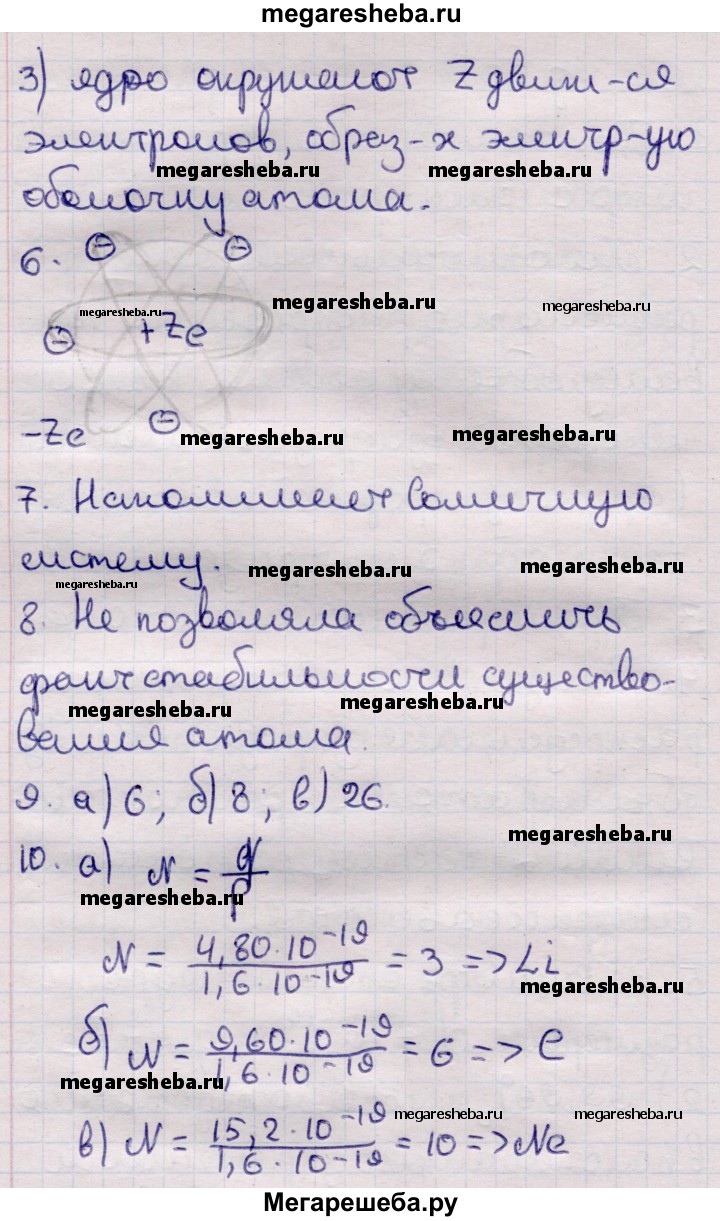 megaresheba.ru
3) ядро окружают Z движ-ся
электронов, образ-х электр-ую
megaresheba.ru megaresheba.ru
оболочку атома.
6. ⊖ ⊖
megaresheba.ru megaresheba.ru megaresheba.ru
⊖ +Ze
-Ze ⊖
megaresheba.ru megaresheba.ru
7. Напоминает Солнечную
систему.
megaresheba.ru megaresheba.ru megaresheba.ru
8. Не позволяла объяснить
факт стабильности существо-
megaresheba.ru megaresheba.ru
вания атома.
9. а) 6; б) 8; в) 26.
megaresheba.ru
10. а) N = q/p
megaresheba.ru
N = 4,80·10⁻¹⁹/1,6·10⁻¹⁹ = 3 => Li
megaresheba.ru
б) N = 9,60·10⁻¹⁹/1,6·10⁻¹⁹ = 6 => C
megaresheba.ru
megaresheba.ru megaresheba.ru
в) N = 15,2·10⁻¹⁹/1,6·10⁻¹⁹ = 10 => Ne
Мегарешеба.ру